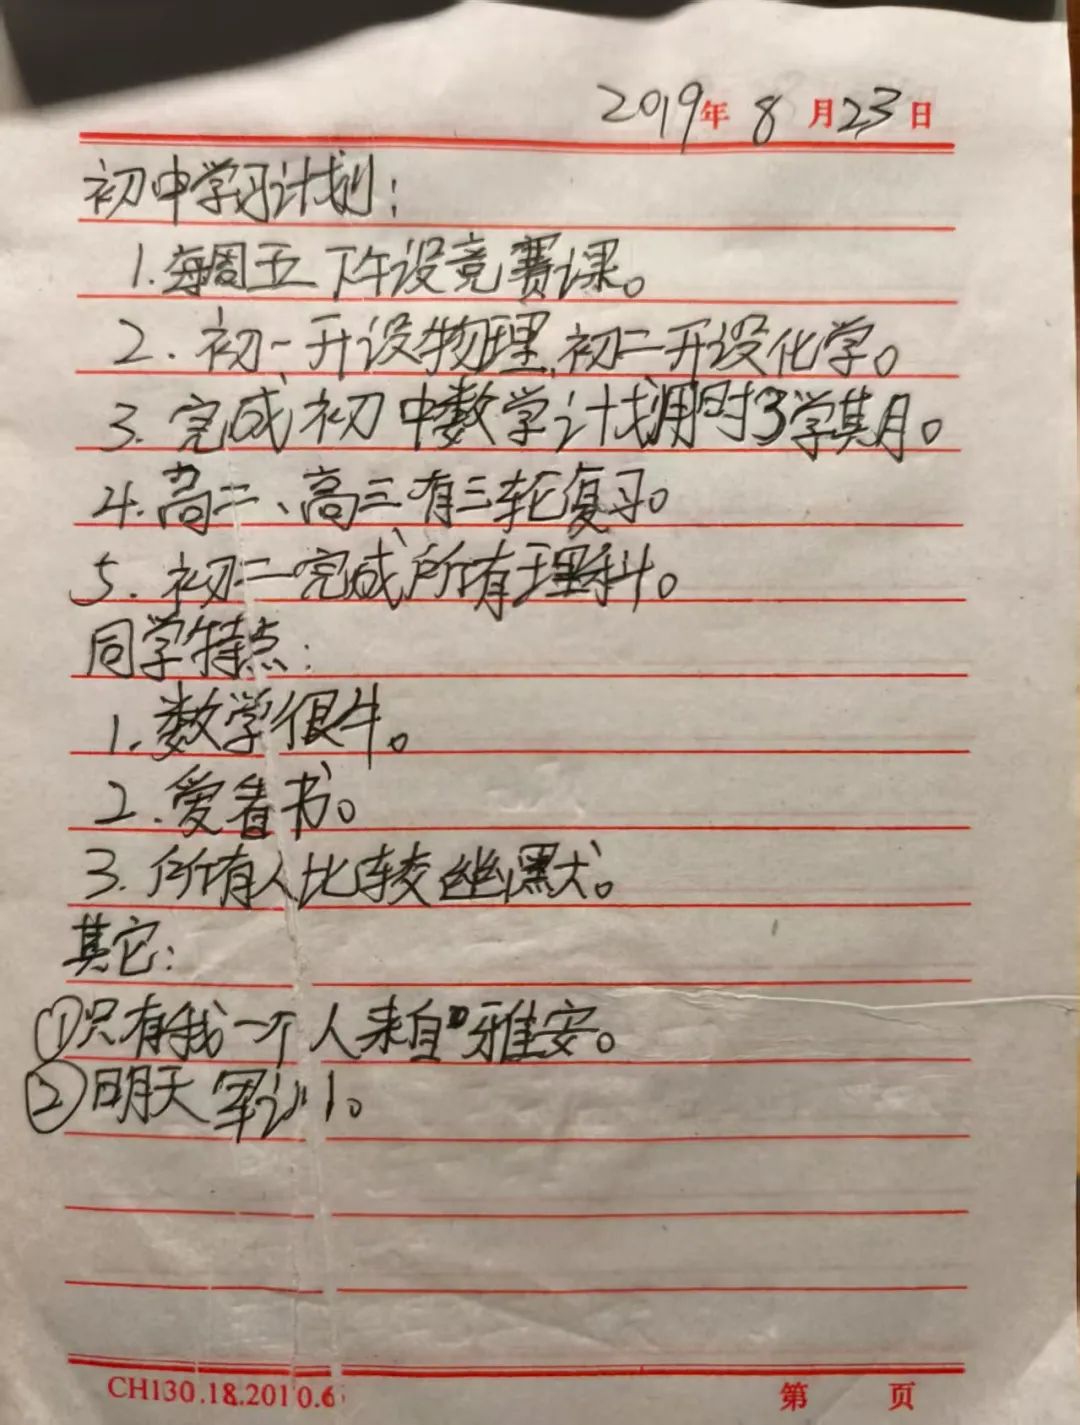 2019年 8 月23日
初中学习计划:
1.每周五下午设竞赛课。
2.初一开设物理,初二开设化学。
3.完成初中数学计划用时3学期。
4.高二、高三有三轮复习。
5.初二完成所有理科。
同学特点:
1.数学很牛。
2.爱看书。
3.所有人比较幽默。
其它:
①只有我一个人来自雅安。
②明天军训。
CH130.18.2010.6
第 页